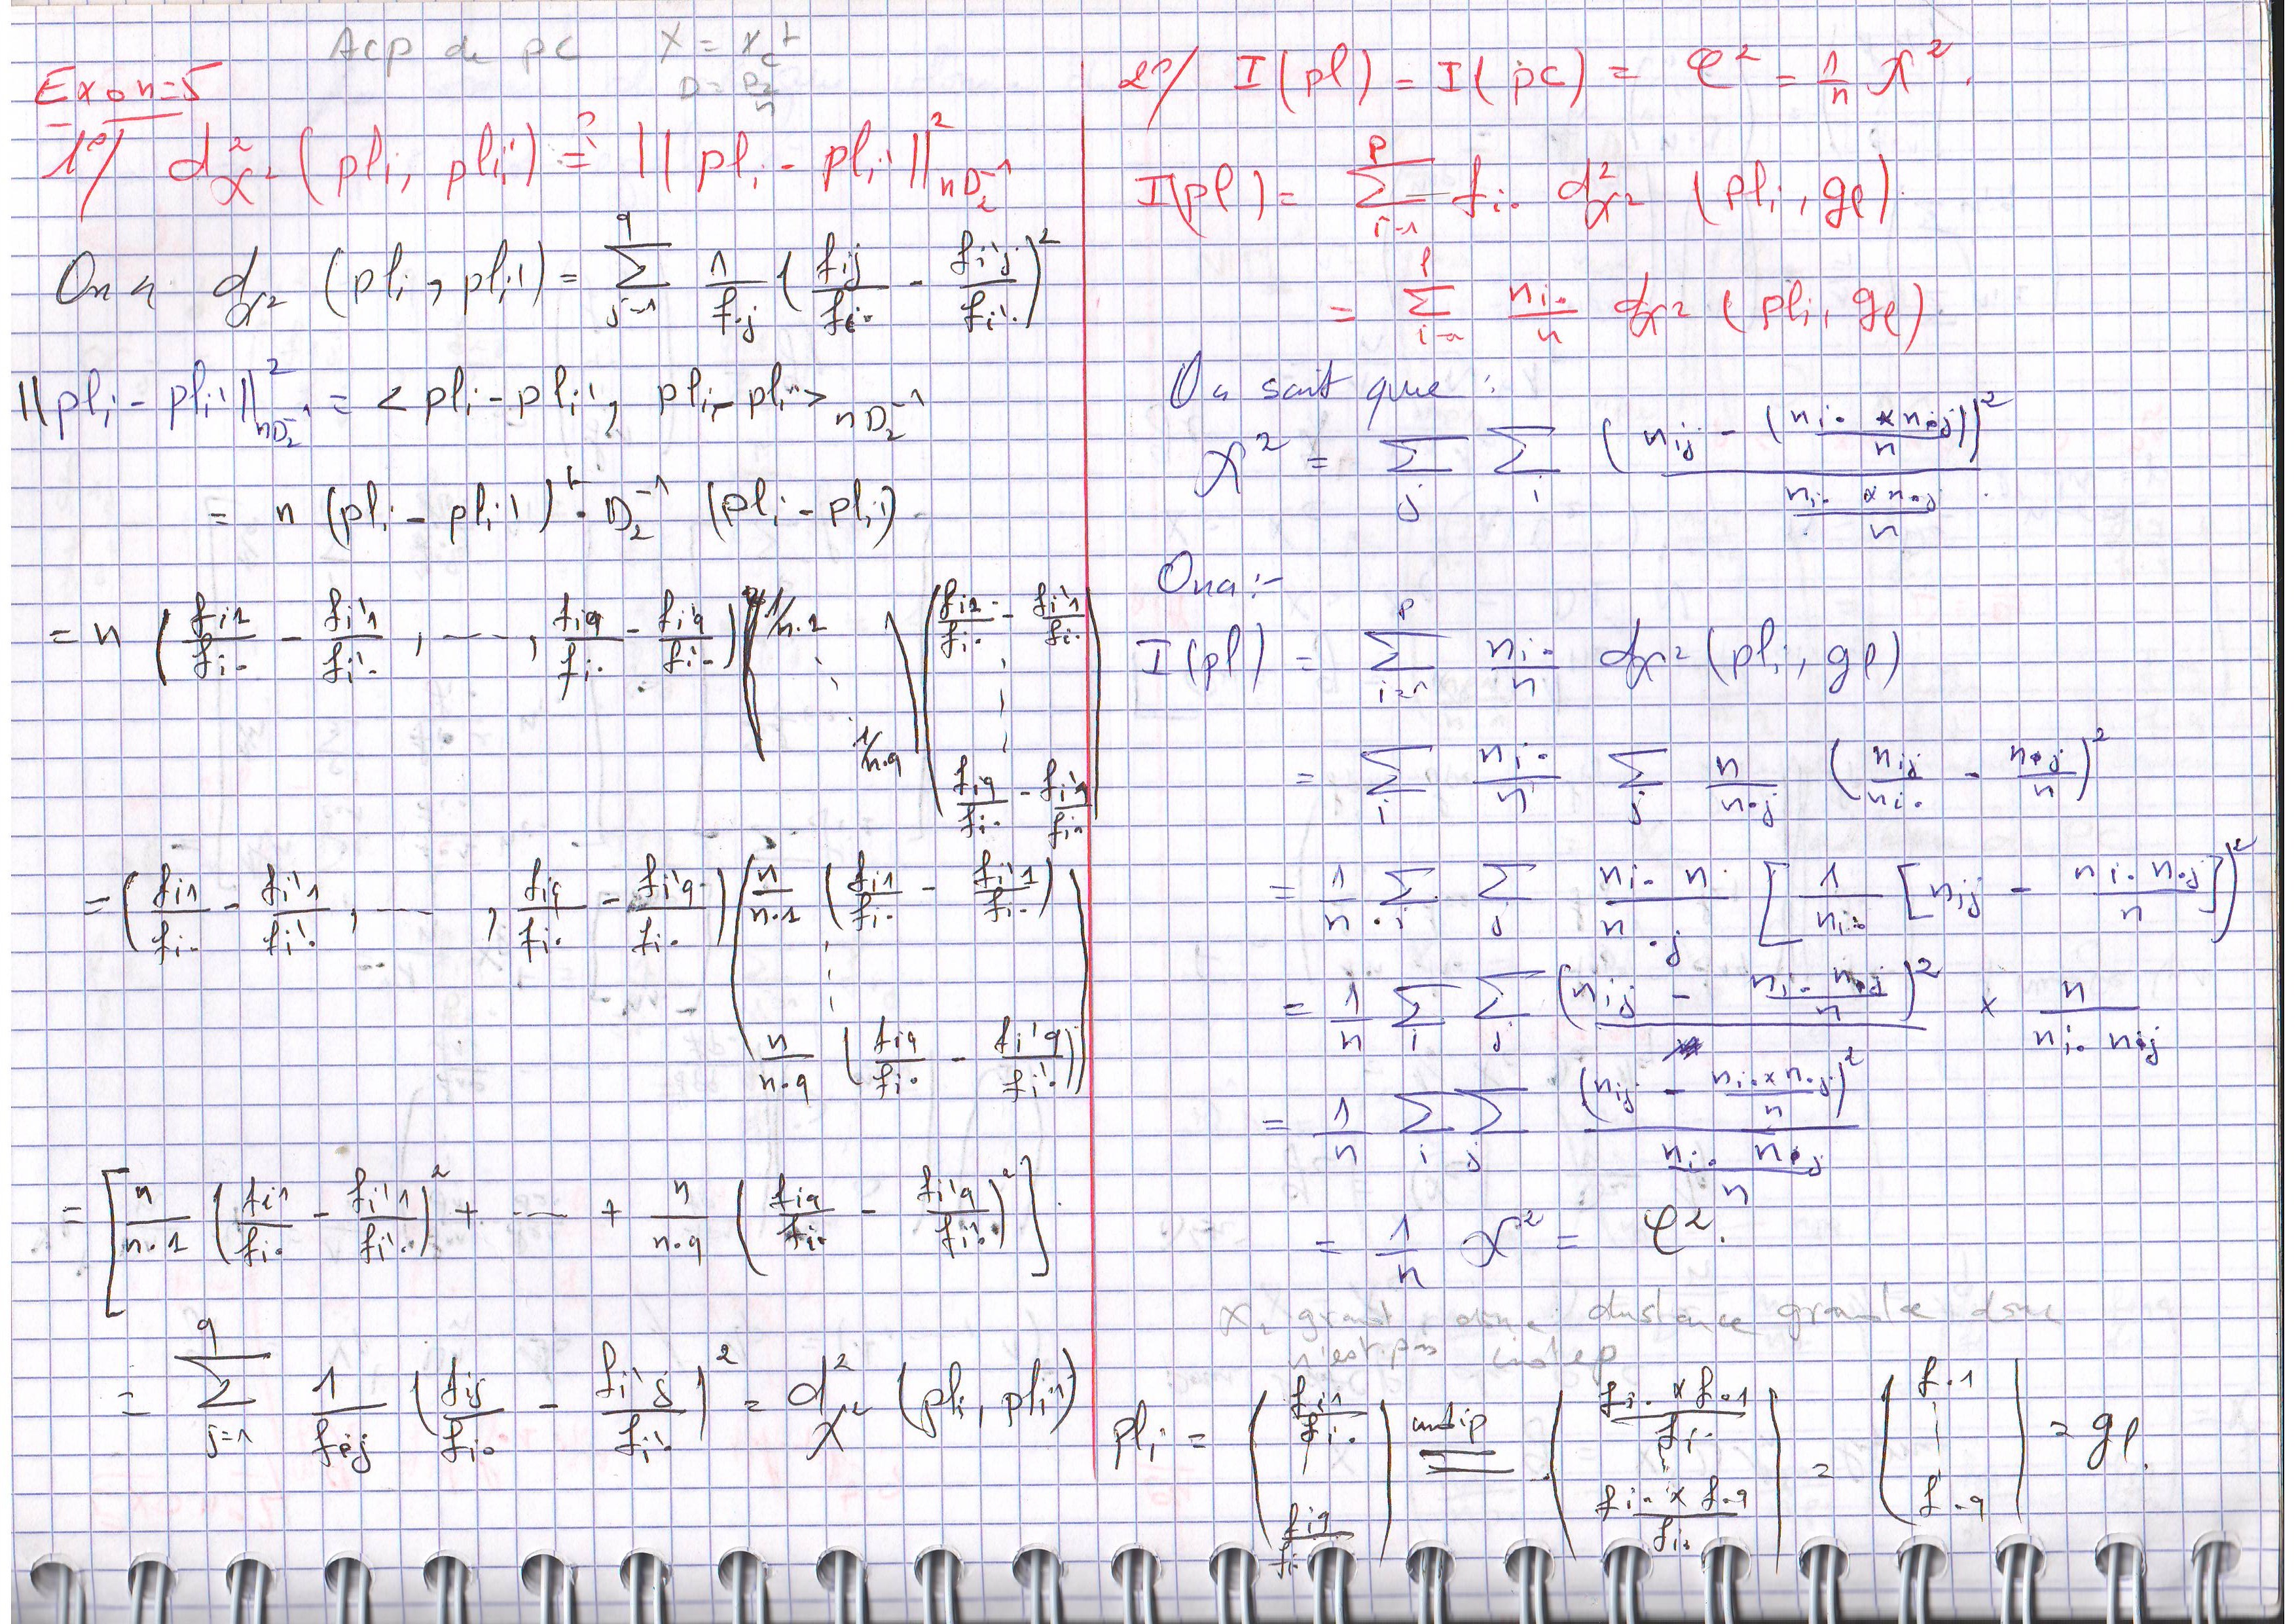 Acp de pc X = X_c^t
D = D_2/n
Exo n=5
1°/ d²_χ² (pl_i, pl_i') =? ||pl_i - pl_i'||²_{nD_2^{-1}}
On a d_χ² (pl_i, pl_i') = Σ_{j=1}^{q} 1/f.j (f_ij/f_i. - f_i'j/f_i'.)²
||pl_i - pl_i'||²_{nD_2^{-1}} = <pl_i - pl_i', pl_i - pl_i'>_{nD_2^{-1}}
= n (pl_i - pl_i')^t · D_2^{-1} (pl_i - pl_i')
= n (f_i1/f_i. - f_i'1/f_i'. , ---- , f_iq/f_i. - f_i'q/f_i'.) (1/n.1 ⋱ 1/n.q) (f_i1/f_i. - f_i'1/f_i. ⋮ f_iq/f_i. - f_i'q/f_i.)
= (f_i1/f_i. - f_i'1/f_i'. , ---- , f_iq/f_i. - f_i'q/f_i.) (n/n.1 (f_i1/f_i. - f_i'1/f_i'.) ⋮ n/n.q (f_iq/f_i. - f_i'q/f_i'.))
= [n/n.1 (f_i1/f_i. - f_i'1/f_i'.)² + ---- + n/n.q (f_iq/f_i. - f_i'q/f_i'.)²].
= Σ_{j=1}^{q} 1/f.j (f_ij/f_i. - f_i'j/f_i'.)² = d²_χ² (pl_i, pl_i')
2°/ I(pl) = I(pc) = φ² = 1/n χ².
I(pl) = Σ_{i=1}^{p} f_i. d²_χ² (pl_i, gl).
= Σ_{i=1}^{p} n_i./n d_χ² (pl_i, gl)
On sait que :
χ² = Σ_j Σ_i (n_ij - (n_i. × n.j)/n)² / (n_i. × n.j / n)
On a :-
I(pl) = Σ_{i=1}^{p} n_i./n d_χ² (pl_i, gl)
= Σ_i n_i./n Σ_j n/n.j (n_ij/n_i. - n.j/n)²
= 1/n Σ_i Σ_j n_i. n/n.j [1/n_i. [n_ij - n_i. n.j/n]]²
= 1/n Σ_i Σ_j (n_ij - n_i. n.j/n)² × n/(n_i. n.j)
= 1/n Σ_i Σ_j (n_ij - n_i. × n.j/n)² / (n_i. n.j / n)
= 1/n χ² = φ².
χ² grand donc distance grande donc
n'est pas indep
pl_i = (f_i1/f_i. ⋮ f_iq/f_i.) =indip= (f_i. × f.1/f_i. ⋮ f_i. × f.q/f_i.) = (f.1 ⋮ f.q) = gl.